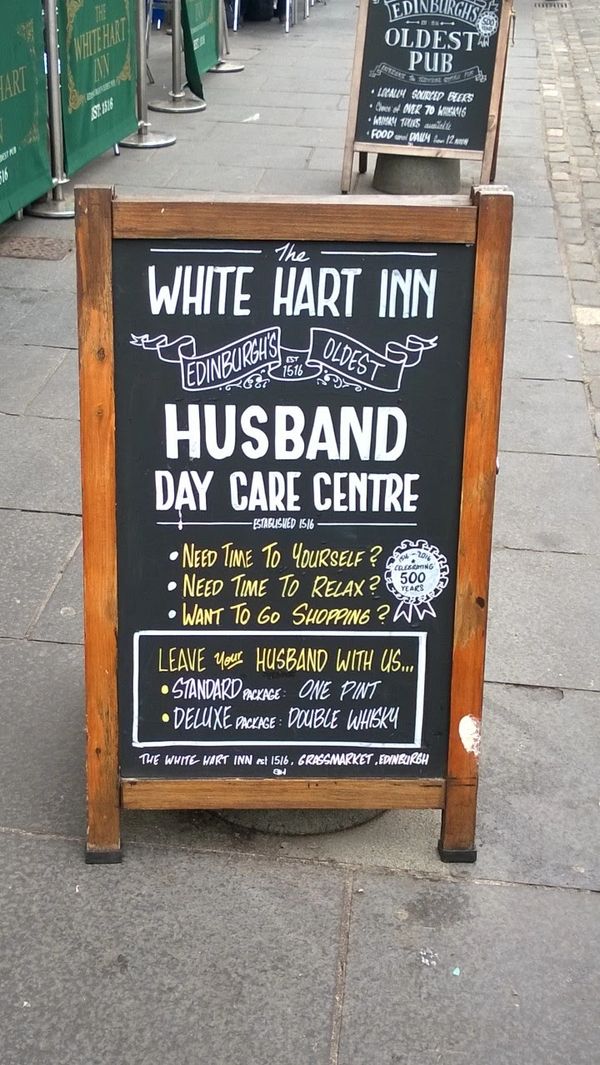 HART
THE
WHITE HART
INN
EST. 1516
EDINBURGH'S
OLDEST
PUB
• LOCALLY SOURCED BEERS
• Choice of OVER 70 WHISKYS
• WHISKY TOURS available
• FOOD served DAILY from 12 noon
The
WHITE HART INN
EDINBURGH'S EST 1516 OLDEST
HUSBAND
DAY CARE CENTRE
ESTABLISHED 1516
• NEED TIME TO YOURSELF?
• NEED TIME TO RELAX?
• WANT TO GO SHOPPING?
1516 - 2016
CELEBRATING
500
YEARS
LEAVE your HUSBAND WITH US...
• STANDARD PACKAGE: ONE PINT
• DELUXE PACKAGE: DOUBLE WHISKY
THE WHITE HART INN est 1516, GRASSMARKET, EDINBURGH